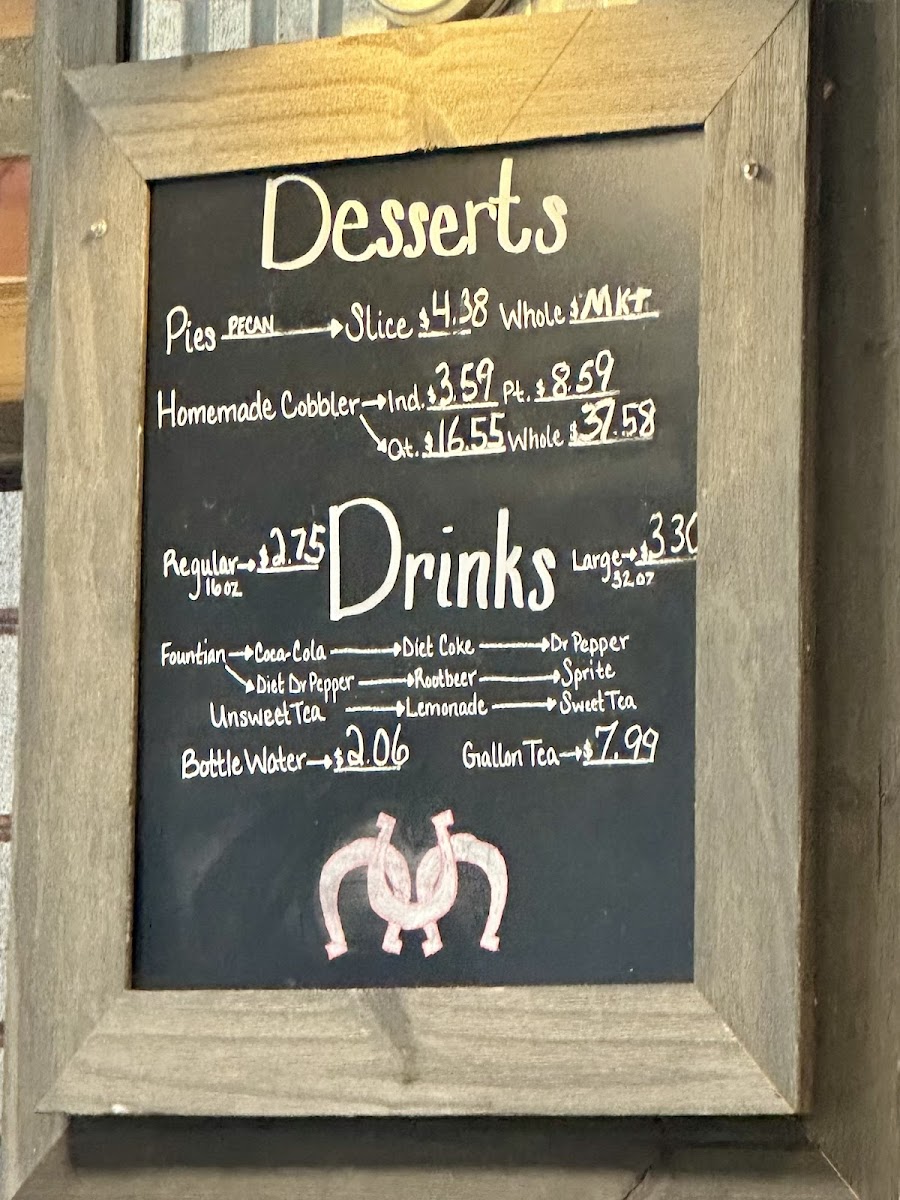 Desserts
Pies PECAN → Slice $4.38 Whole $MKt
Homemade Cobbler → Ind. $3.59 Pt. $8.59
Qt. $16.55 Whole $37.58
Drinks
Regular → $2.75
16oz
Large → $3.30
32oz
Fountian → Coca-Cola → Diet Coke → Dr Pepper
Diet Dr Pepper → Rootbeer → Sprite
Unsweet Tea → Lemonade → Sweet Tea
Bottle Water → $2.06 Gallon Tea → $7.99